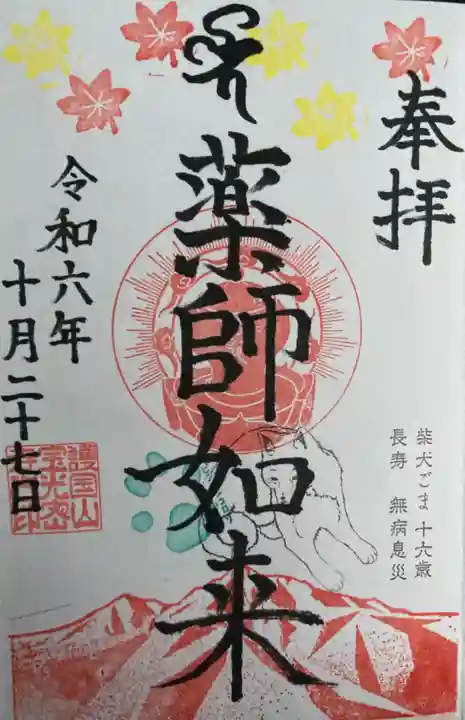 奉拝
薬師如来
柴犬ごま 十六歳
長寿 無病息災
令和六年
十月二十七日